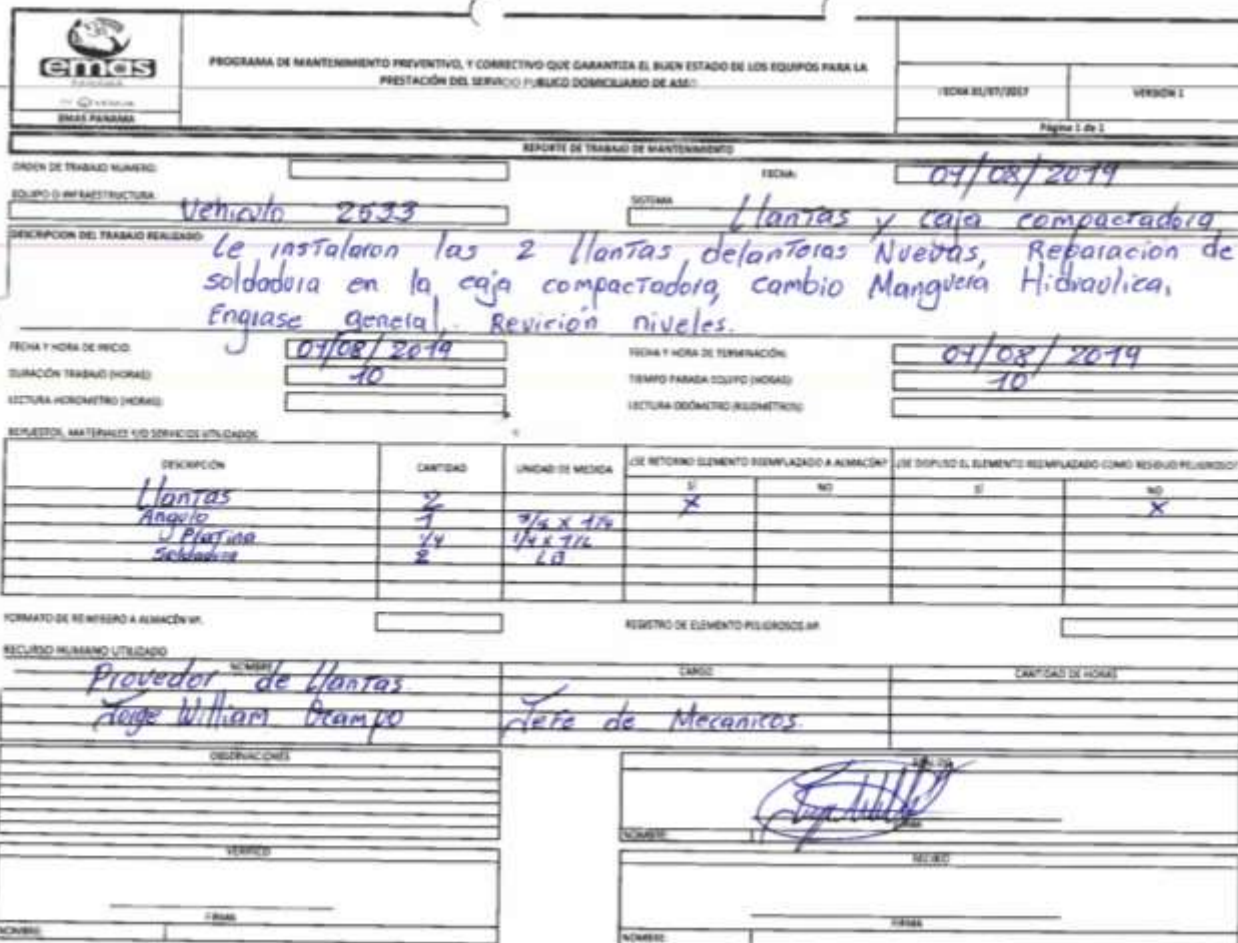 emas
PANAMA
EMAS PANAMA
PROGRAMA DE MANTENIMIENTO PREVENTIVO, Y CORRECTIVO QUE GARANTIZA EL BUEN ESTADO DE LOS EQUIPOS PARA LA
PRESTACIÓN DEL SERVICIO PUBLICO DOMICILIARIO DE ASEO
FECHA 01/07/2017
VERSION 1
Página 1 de 1
REPORTE DE TRABAJO DE MANTENIMIENTO
ORDEN DE TRABAJO NUMERO:
FECHA: 01/08/2019
EQUIPO O INFRAESTRUCTURA: Vehiculo 2533
SISTEMA: Llantas y caja compactadora
DESCRIPCION DEL TRABAJO REALIZADO: Le instalaron las 2 llantas delanteras Nuevas, Reparacion de
soldadura en la caja compactadora, cambio Manguera Hidraulica,
Engrase general. Revición niveles.
FECHA Y HORA DE INICIO: 01/08/2019
FECHA Y HORA DE TERMINACIÓN: 01/08/2019
DURACIÓN TRABAJO (HORAS): 10
TIEMPO PARADA EQUIPO (HORAS): 10
LECTURA HOROMETRO (HORAS):
LECTURA ODÓMETRO (KILOMETROS):
REPUESTOS, MATERIALES Y/O SERVICIOS UTILIZADOS
DESCRIPCIÓN CANTIDAD UNIDAD DE MEDIDA ¿SE RETORNO ELEMENTO REEMPLAZADO A ALMACÉN? ¿SE DISPUSO EL ELEMENTO REEMPLAZADO COMO RESIDUO PELIGROSO?
SÍ NO SÍ NO
Llantas 2 X X
Angulo 1
Platina 1/4
Soldadura 2 LB
FORMATO DE REINGRESO A ALMACÉN Nº.
REGISTRO DE ELEMENTO PELIGROSOS Nº.
RECURSO HUMANO UTILIZADO
NOMBRE CARGO CANTIDAD DE HORAS
Provedor de llantas
Jorge William Ocampo Jefe de Mecanicos.
OBSERVACIONES
FIRMA
NOMBRE:
VERIFICO
RECIBIO
FIRMA
FIRMA
NOMBRE:
NOMBRE: